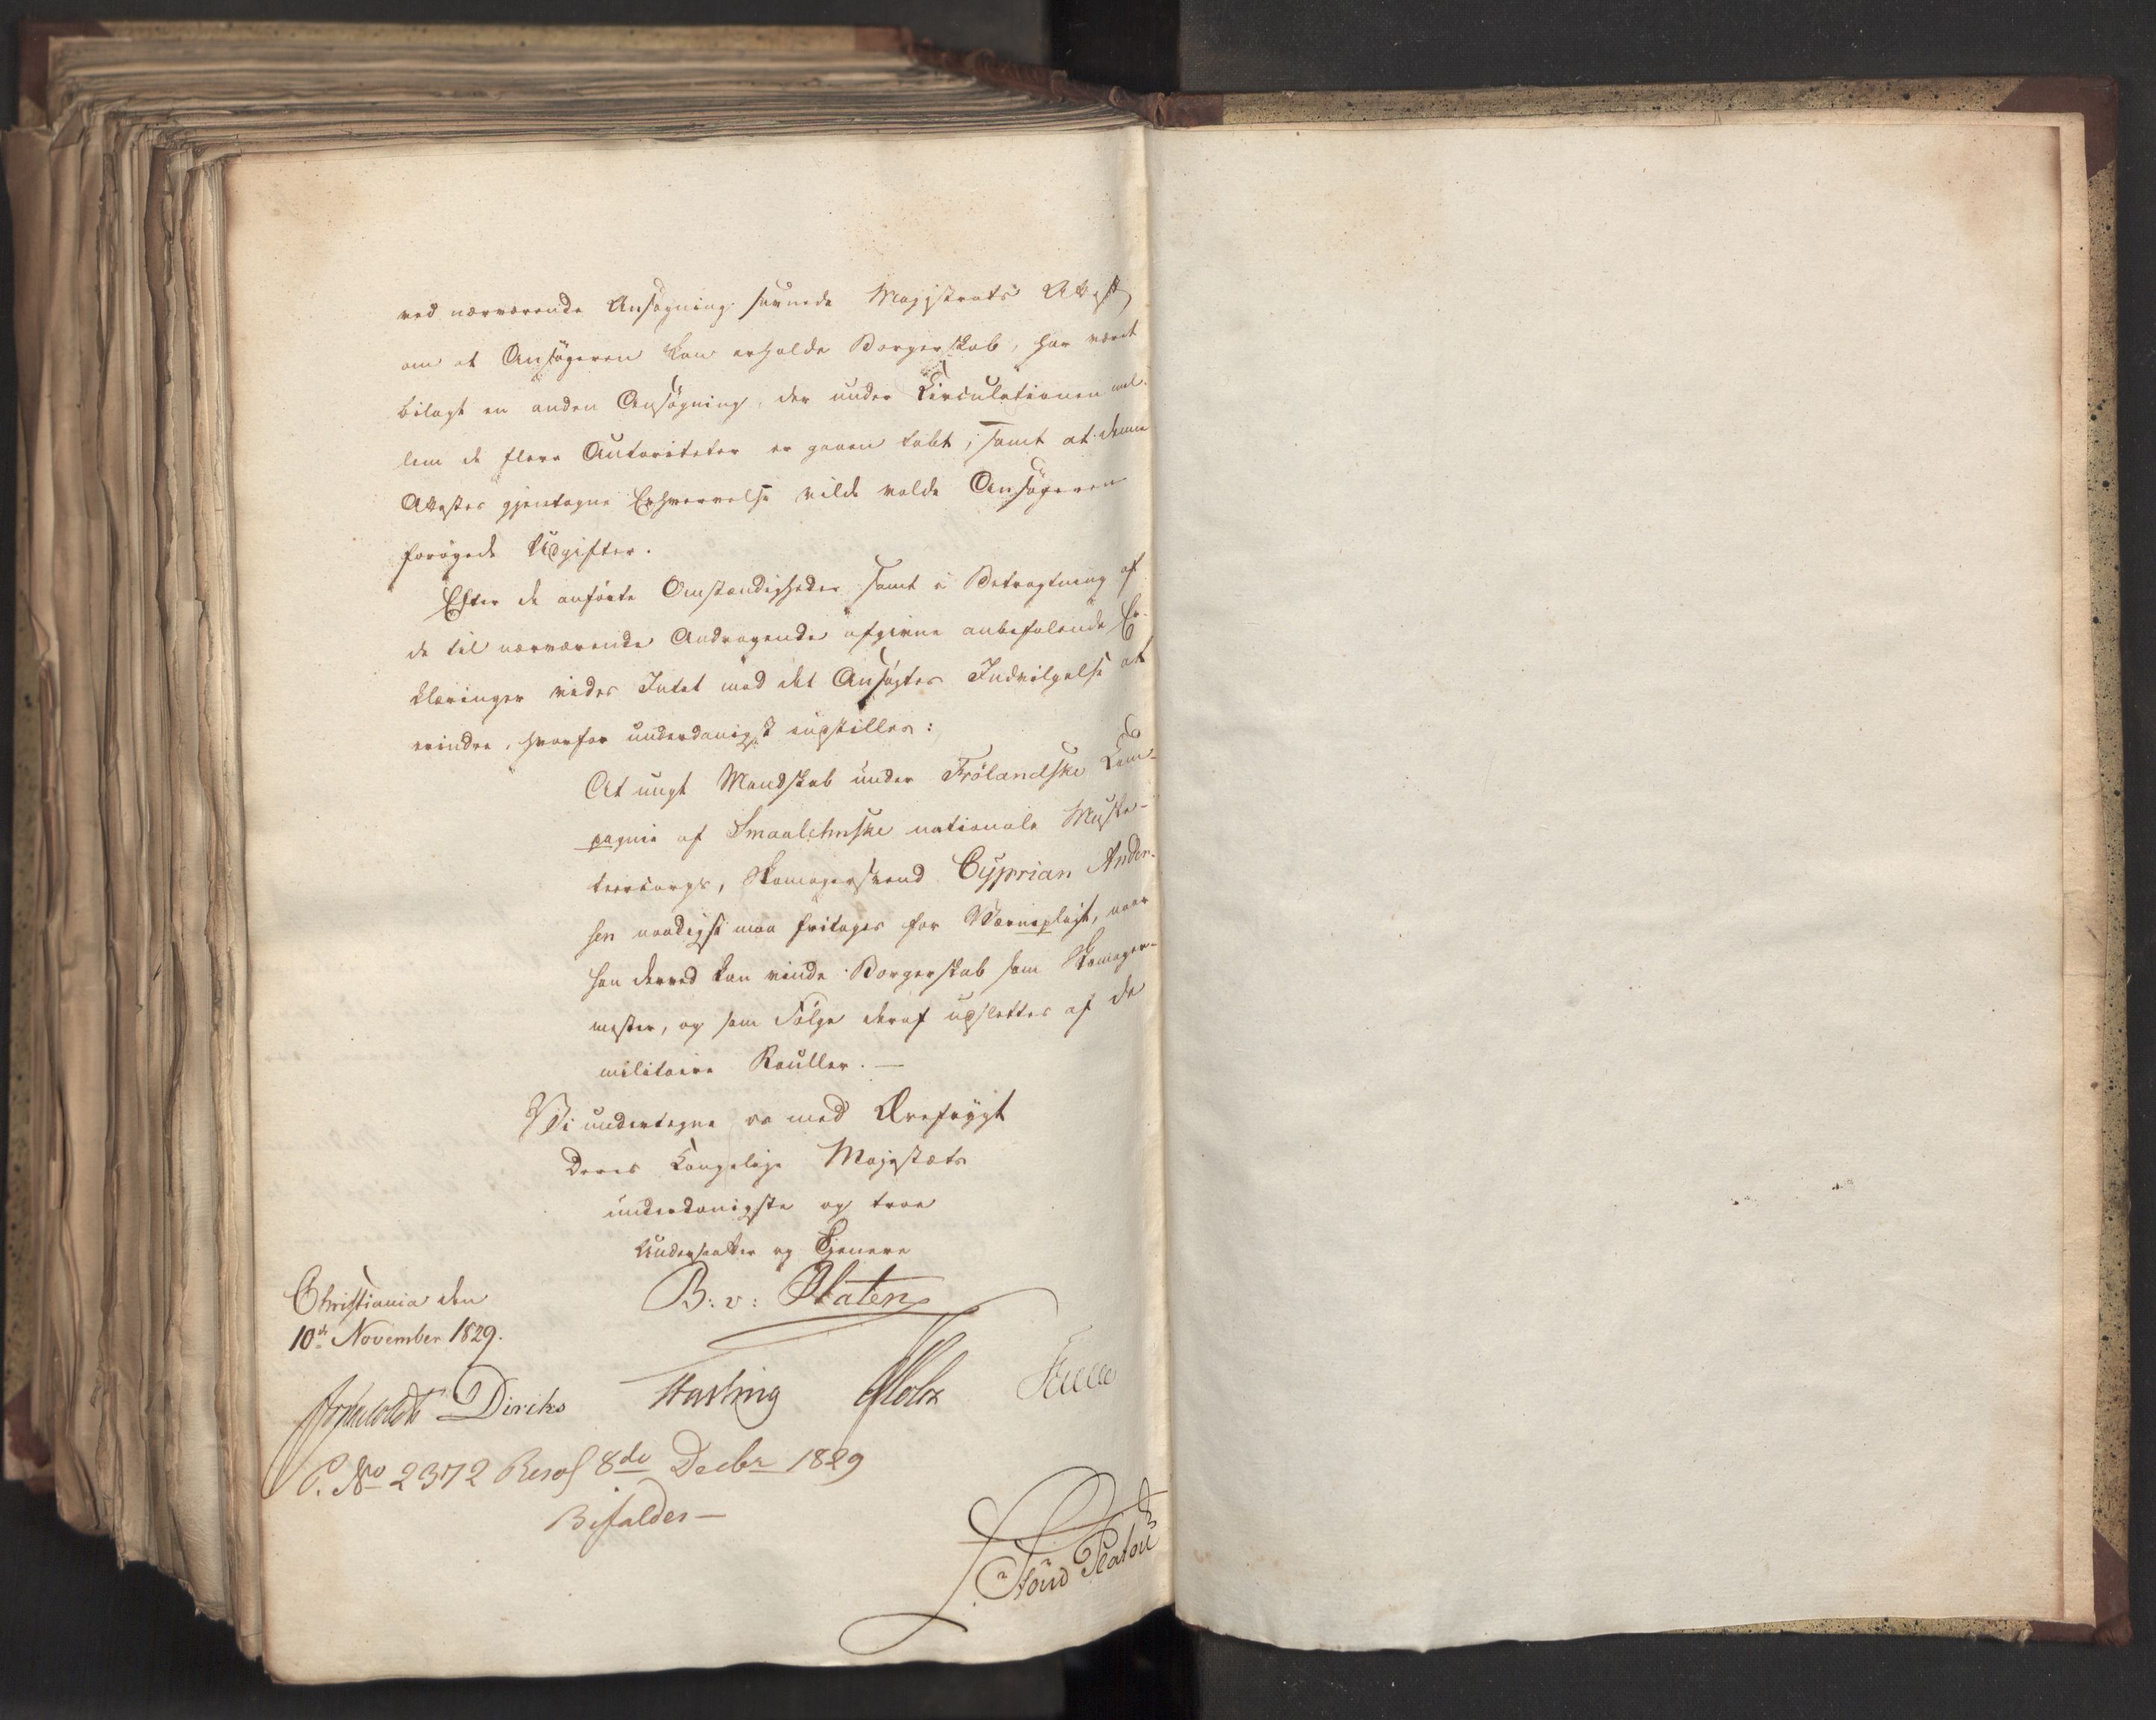 ved nærværende Ansøgning savnede Magistrats Attest
om at Ansøgeren kan erholde Borgerskab, har været
bilagt en anden Ansøgning, der under Circulationen mel-
lem de flere Autoriteter er gaaen tabt; samt at denne
Attestes gjentagne Erhvervelse vilde volde Ansøgeren
forøgede Udgifter.
Efter de anførte Omstændigheder samt i Betragtning af
de til nærværende Andragende afgivne anbefalende Er-
klæringer vides Intet mod det Ansøgtes Indvilgelse at
erindre, hvorfor underdanigst indstilles:
At ungt Mandskab under Frölandske Com-
pagnie af Smaalehnske nationale Muske-
teercorps, Skomagersvend Cyprian Ander-
sen naadigst maa fritages for Værnepligt, naar
han derved kan vinde Borgerskab som Skomager-
mester, og som Følge deraf udslettes af de
militaire Rouller. —
Vi undertegne os med Ærefrygt
Deres Kongelige Majestæts
underdanigste og troe
Undersaatter og Tjenere
Christiania den
10de November 1829.
B: v: Platen
Diriks Fasting Holst
P. No 2372 Resol 8de Decbr 1829
Bifaldes —